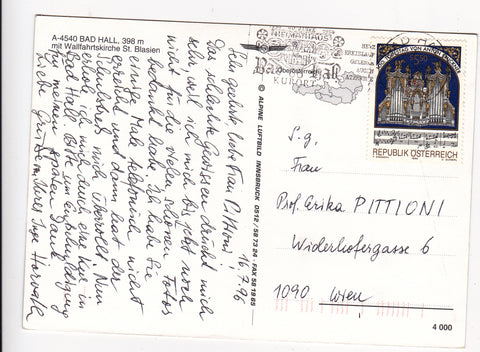 A-4540 BAD HALL, 398 m
mit Wallfahrtskirche St. Blasien
16.7.96
Sehr geehrte liebe Frau Pittioni!
Das schlechte Gewissen drückt mich
sehr weil ich mich bis jetzt noch
nicht für die vielen schönen Fotos
bedankt habe. Ich habe Sie
einige Male telefonisch nicht
erreicht und dann hat der
Schulstreß mich überrollt. Nun
erhole ich mich durch eine Kur in
Bad Hall. Bitte um Entschuldigung
für meinen späten Dank.
Liebe Grüße Inge Horvath
© ALPINE LUFTBILD INNSBRUCK 0512/58 73 84 - FAX 58 18 65
HEIMATHAUS
Bad Hall
Oberösterreich
KURORT
100. TODESTAG VON ANTON BRUCKNER
S 5.50
REPUBLIK ÖSTERREICH
S.g.
Frau
Prof. Erika PITTIONI
Widerhofergasse 6
1090 Wien
4 000